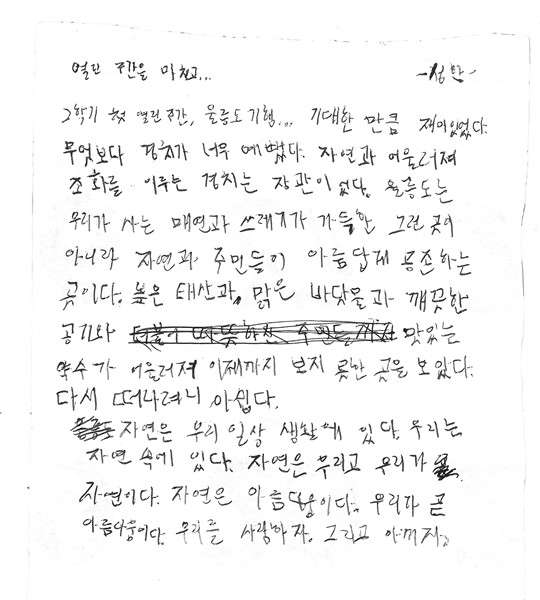 열린 주간을 마치고...
-성만-
2학기 첫 열린주간, 울릉도 기행... 기대한 만큼 재미있었다.
무엇보다 경치가 너무 예뻤다. 자연과 어울러져
조화를 이루는 경치는 장관이었다. 울릉도는
우리가 사는 매연과 쓰레기가 가득한 그런 곳이
아니라 자연과 주민들이 아름답게 공존하는
곳이다. 높은 태산과, 맑은 바닷물과 깨끗한
공기와 더불어 따뜻하신 주민들까지 맛있는
약수가 어울러져 이제까지 보지 못한 곳을 보았다.
다시 떠나려니 아쉽다.
울릉도 자연은 우리 일상 생활에 있다. 우리는
자연 속에 있다. 자연은 우리고 우리가
자연이다. 자연은 아름다움이다. 우리가 곧
아름다움이다. 우리를 사랑하자. 그리고 아끼자.